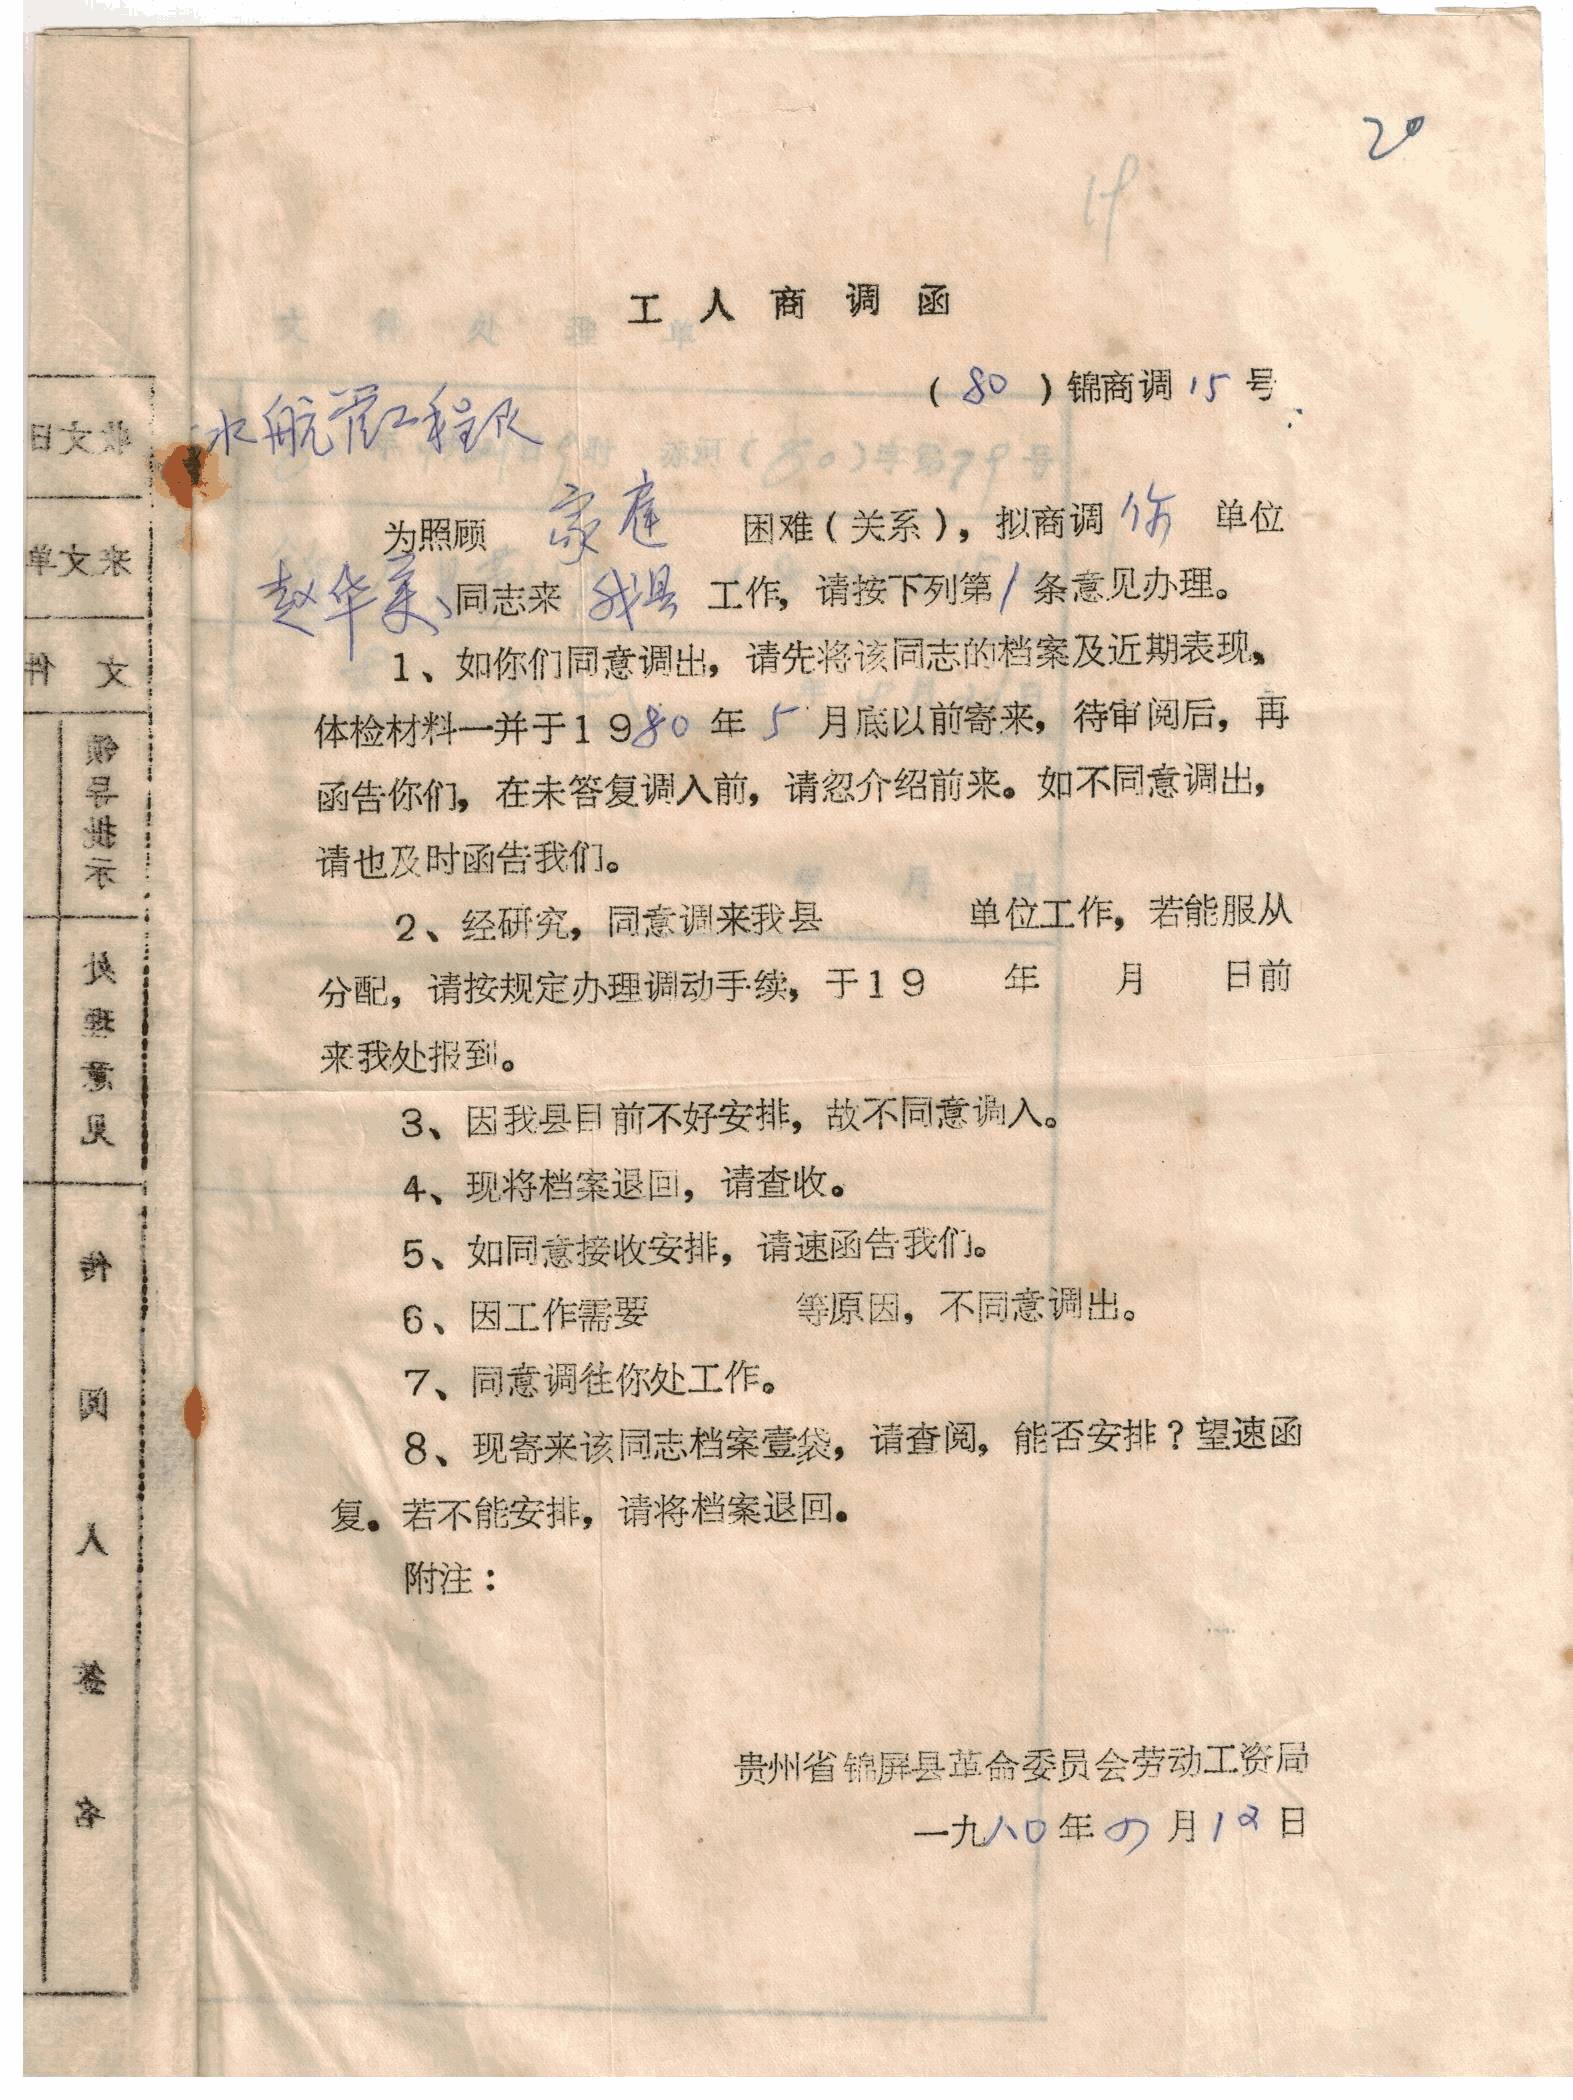 20
19
工人商调函
(80)锦商调15号
水航管工程队
为照顾 家庭 困难(关系),拟商调 你 单位
赵华美 同志来 我县 工作,请按下列第1条意见办理。
1、如你们同意调出,请先将该同志的档案及近期表现、
体检材料一并于1980年5月底以前寄来,待审阅后,再
函告你们,在未答复调入前,请忽介绍前来。如不同意调出,
请也及时函告我们。
2、经研究,同意调来我县 单位工作,若能服从
分配,请按规定办理调动手续,于19 年 月 日前
来我处报到。
3、因我县目前不好安排,故不同意调入。
4、现将档案退回,请查收。
5、如同意接收安排,请速函告我们。
6、因工作需要 等原因,不同意调出。
7、同意调往你处工作。
8、现寄来该同志档案壹袋,请查阅,能否安排?望速函
复。若不能安排,请将档案退回。
附注:
贵州省锦屏县革命委员会劳动工资局
一九八〇年四月12日
收文日
来文单
文件
领导批示
处理意见
传阅人签名
文件处理单